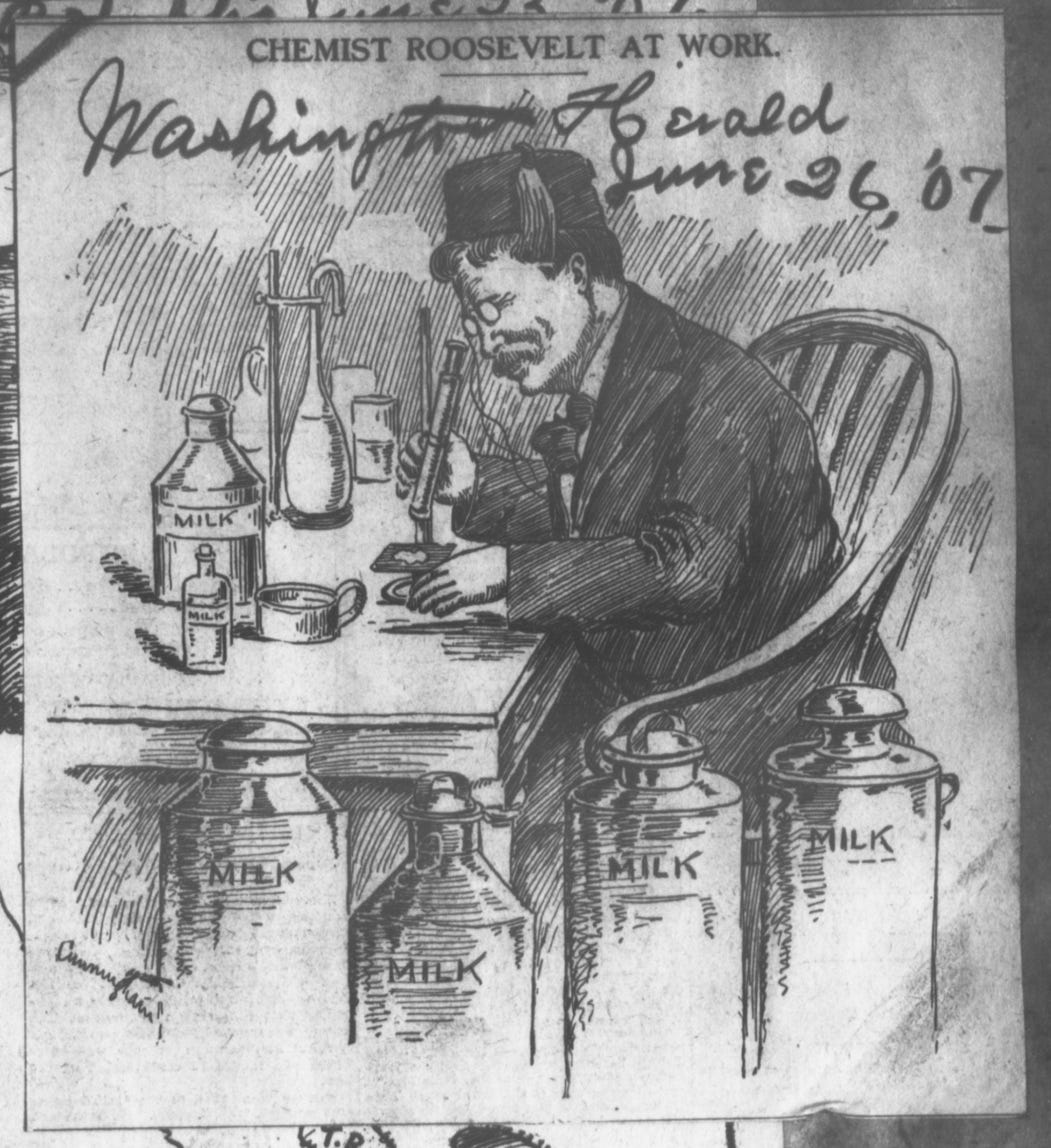 CHEMIST ROOSEVELT AT WORK.
Washington Herald
June 26, '07
MILK
MILK
MILK
MILK
MILK
MILK
Cunningham